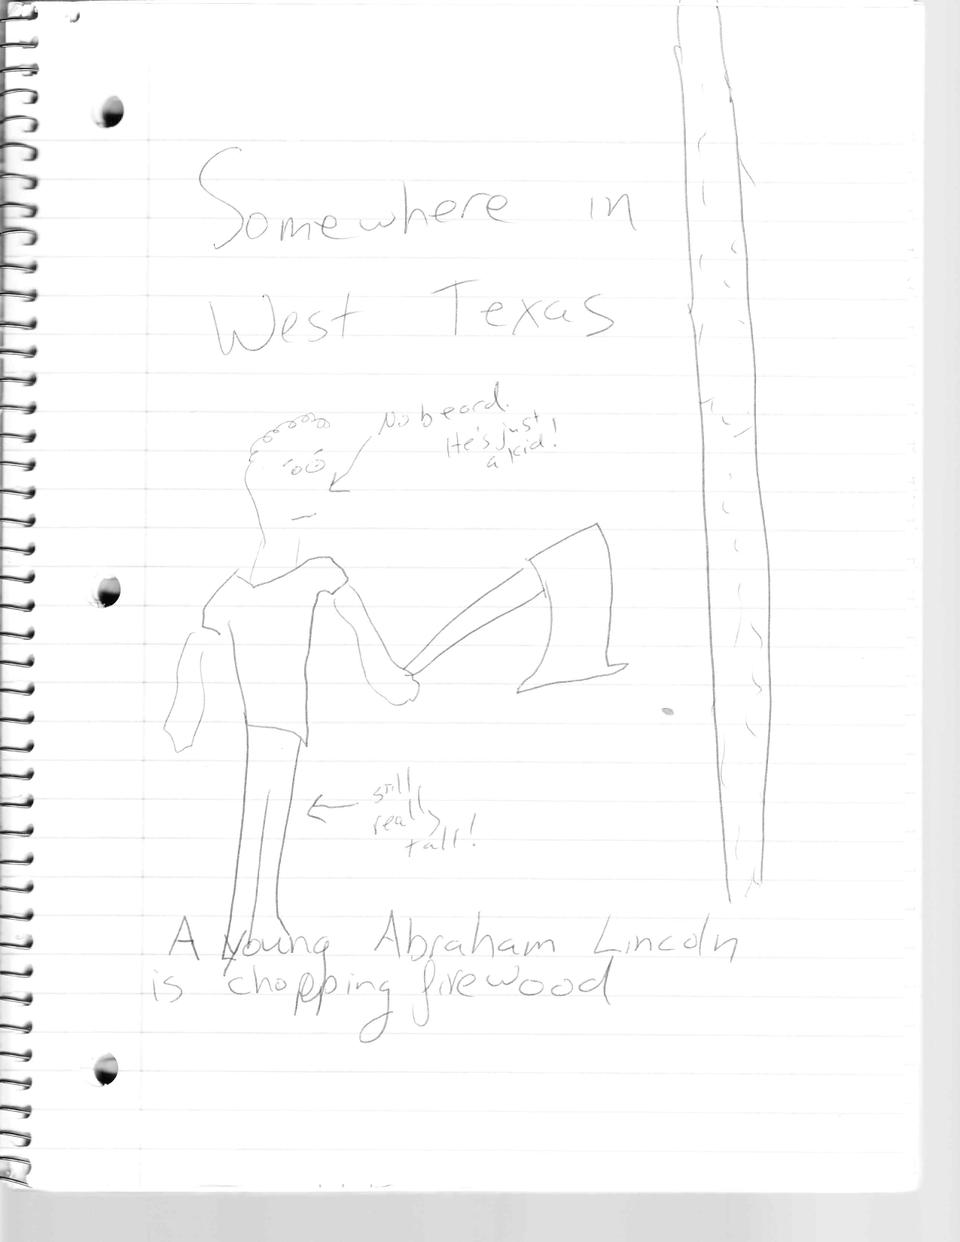 Somewhere in
West Texas
No beard.
He's just
a kid!
still
really
tall!
A young Abraham Lincoln
is chopping firewood